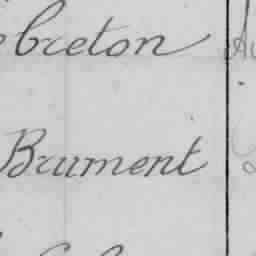 ebreton
Brument